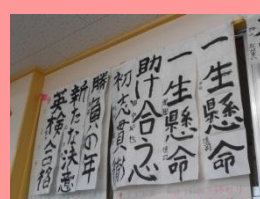 一生懸命
一生懸命
助け合う心
初志貫徹
勝負の年
新たな決意
英検合格